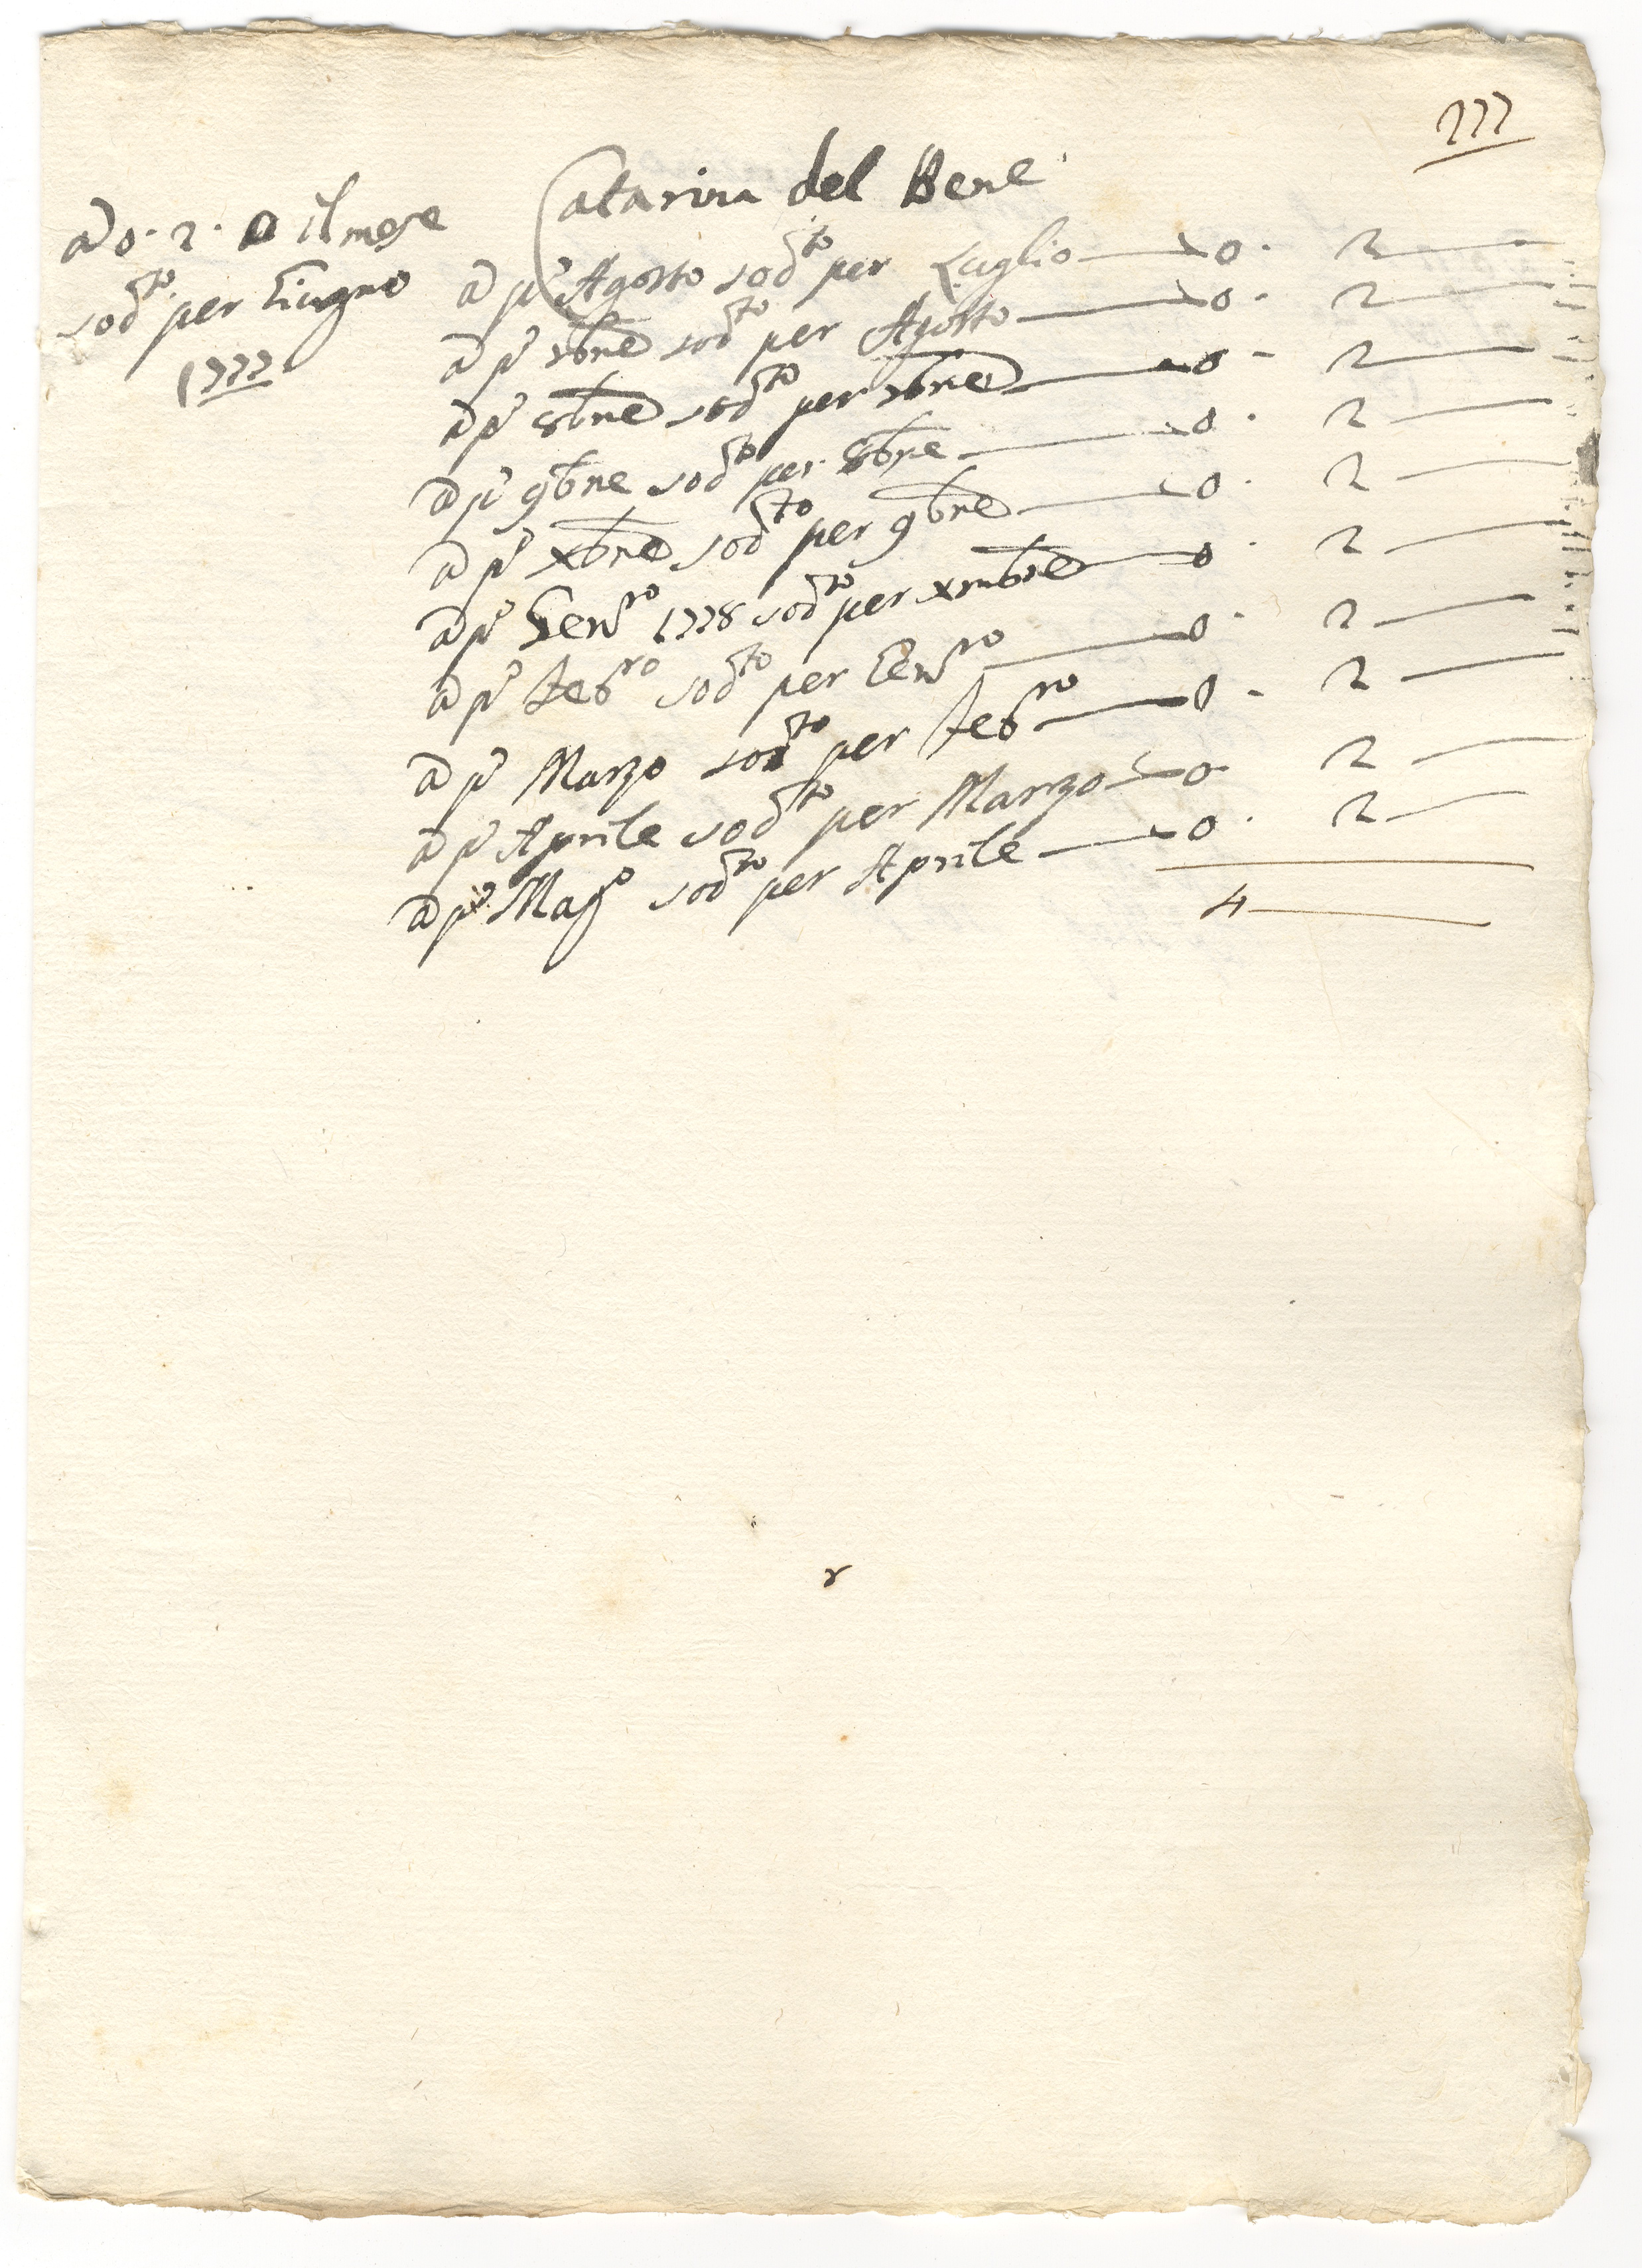 777
Catarina del Bene
a 0. 2. 0 il mese
sod.to per Giugno
1777
a p.o Agosto sod.to per Luglio — 0. 2 —
a p.o 7bre sod.to per Agosto — 0. 2 —
a p.o 8bre sod.to per 7bre — 0 - 2 —
a p.o 9bre sod.to per 8bre — 0. 2 —
a p.o xbre sod.to per 9bre — 0. 2 —
a p.o Gen.ro 1778 sod.to per xmbre — 0. 2 —
a p.o Feb.ro sod.to per Gen.ro — 0. 2 —
a p.o Marzo sod.to per Feb.ro — 0 - 2 —
a p.o Aprile sod.to per Marzo — 0 - 2 —
a p.o Mag.o sod.to per Aprile — 0. 2 —
4 —